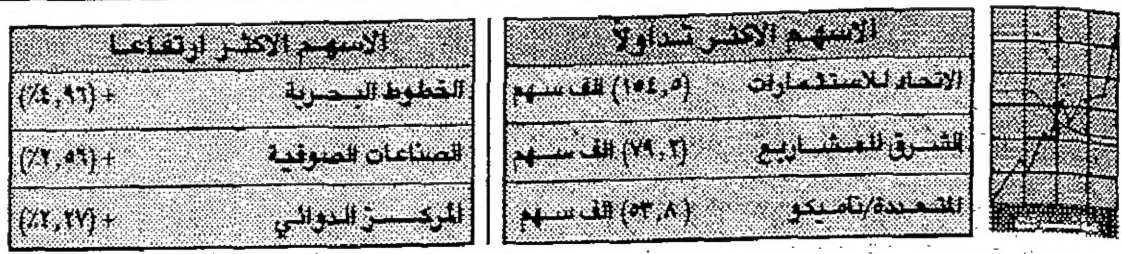 الاسهم الاكثر تداولاً
الاتحاد للاستثمارات (١٥٤,٥) الف سهم
الشرق للمشاريع (٧٩,٢) الف سهم
المتعددة/تاميكو (٥٣,٨) الف سهم
الاسهم الاكثر ارتفاعا
الخطوط البحرية + (٤,٩٦٪)
الصناعات الصوفية + (٢,٥٦٪)
المركز الدوائي + (٢,٢٧٪)